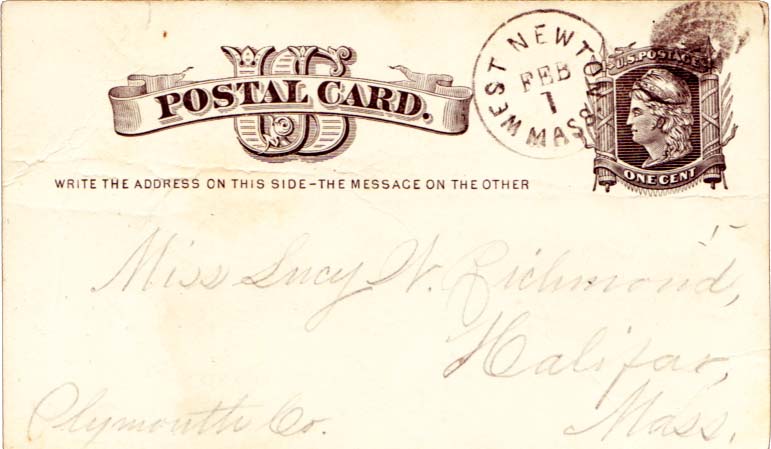 US
POSTAL CARD.
WEST NEWTON
FEB
1
MASS
U.S. POSTAGE
ONE CENT
WRITE THE ADDRESS ON THIS SIDE-THE MESSAGE ON THE OTHER
Miss Lucy W. Richmond,
Halifax,
Plymouth Co. Mass.